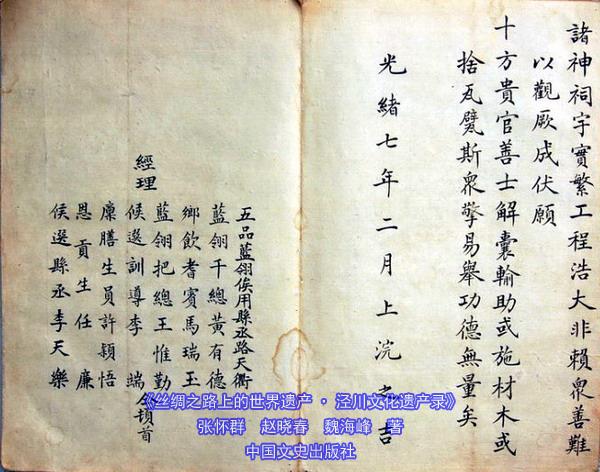 諸神祠宇實繁工程浩大非賴眾善難
以觀厥成伏願
十方貴官善士解囊輸助或施材木或
捨瓦甓斯眾擎易舉功德無量矣
光緒七年二月上浣之吉
五品藍翎俟用縣丞路天衢
藍翎千總黃有德
鄉飲耆賓馬瑞玉
藍翎把總王惟勤
經理
候選訓導李端
仝頓首
廩膳生員許穎悟
恩貢生任廉
候選縣丞李天樂
《丝绸之路上的世界遗产·泾川文化遗产录》
张怀群 赵晓春 魏海峰 著
中国文史出版社